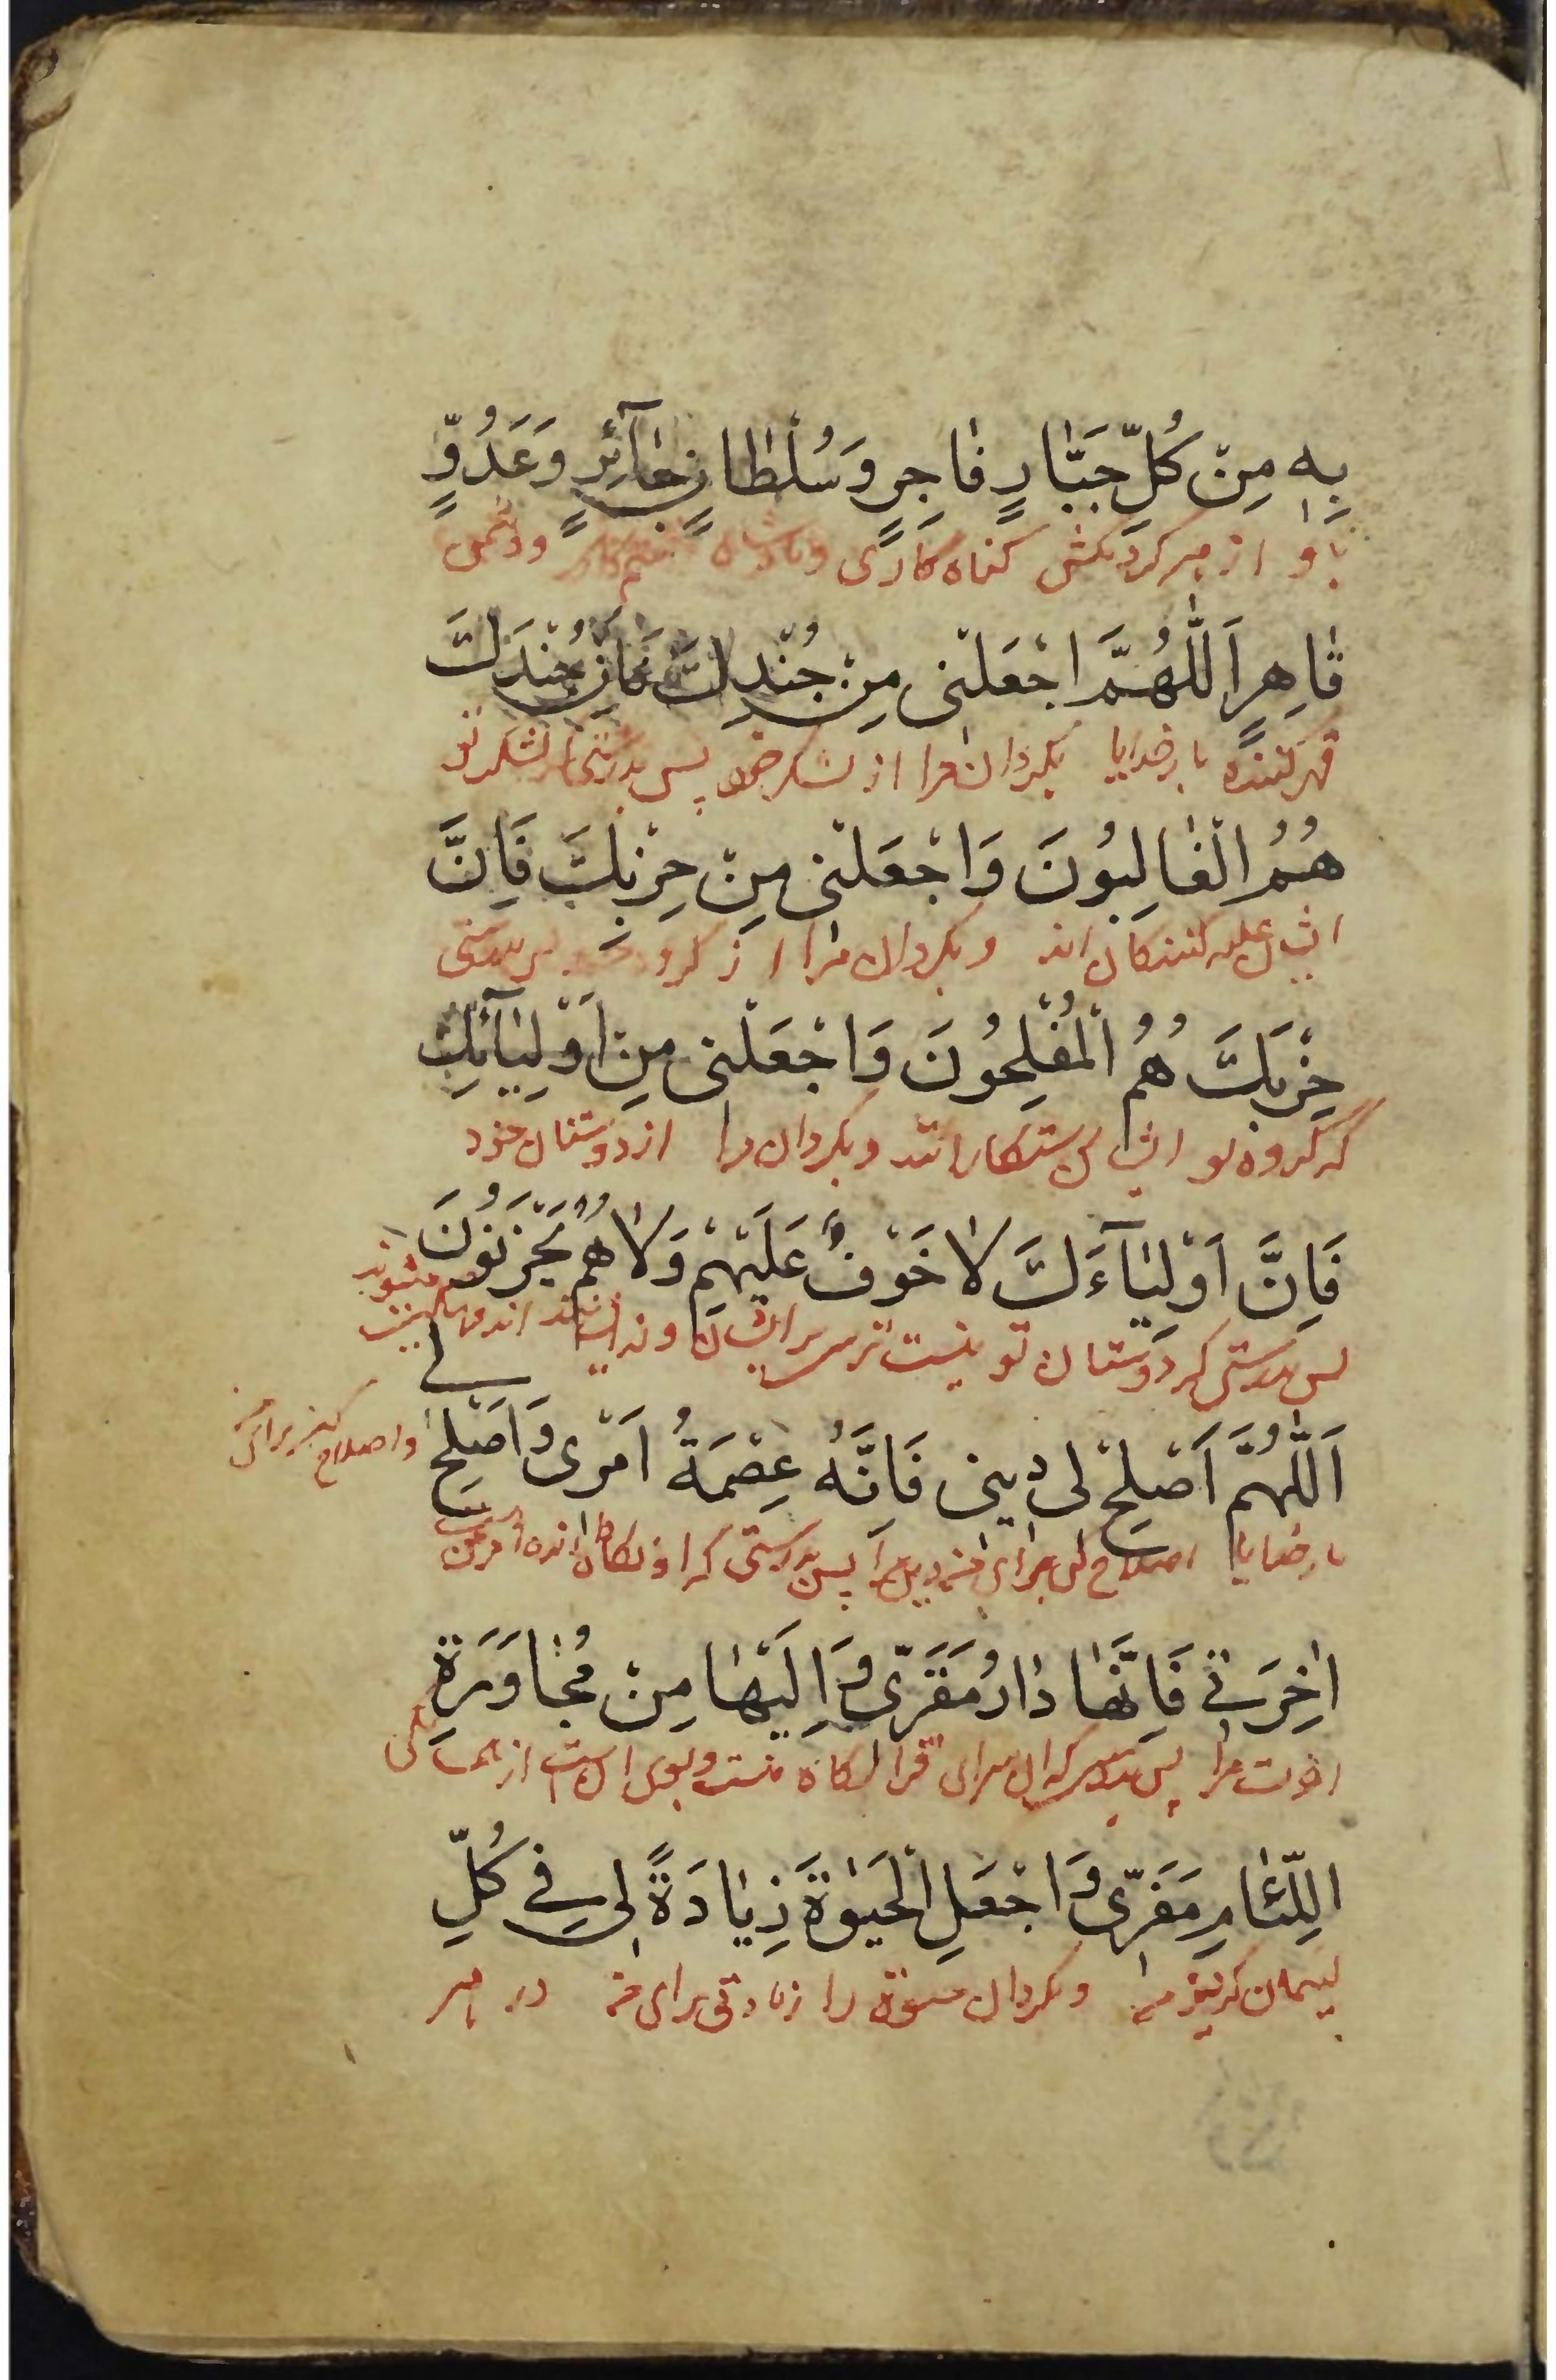 بِهِ مِنْ كُلِّ جَبَّارٍ فَاجِرٍ وَسُلْطَانٍ جَآئِرٍ وَعَدُوٍّ
باو از هر کردنکش کناه کاری وپادشاه ستم کار ودشمن
قَاهِرٍ اَللّٰهُمَّ اجْعَلْنی مِنْ جُنْدِكَ فَاِنَّ جُنْدَكَ
قهر کننده بار خدایا بکردان مرا از لشکر خود پس بدرستی که لشکر تو
هُمُ الْغَالِبُونَ وَاجْعَلْنی مِنْ حِزْبِكَ فَاِنَّ
ایشان غلبه کنندکان اند وبکردان مرا از کروه پس بدرستی
حِزْبَكَ هُمُ الْمُفْلِحُونَ وَاجْعَلْنی مِنْ اَوْلِیَآئِكَ
که کروه تو ایشان رستکارانند وبکردان مرا از دوستان خود
فَاِنَّ اَوْلِیَآءَكَ لَا خَوْفٌ عَلَیْهِمْ وَلَا هُمْ یَحْزَنُونَ
پس بدرستی که دوستان تو نیست ترس بر ایشان ونه ایشان اندوهناک میشوند
لی
اَللّٰهُمَّ اَصْلِحْ لی دینی فَاِنَّهُ عِصْمَةُ اَمْری وَاَصْلِحْ
واصلاح کن برای من
بار خدایا اصلاح کن برای من دین مرا پس بدرستی که او نکاه دارنده امر من
اٰخِرَتی فَاِنَّهَا دَارُ مَقَرّی وَاِلَیْهَا مِنْ مُجَاوَرَةِ
اخرت مرا پس بدرستی که ان سرای قرارکاه منست وبسوی ان است از همسایکی
اللِّئَامِ مَفَرّی وَاجْعَلِ الْحَیٰوةَ زِیَادَةً لی فی كُلِّ
لییمان کریز من وبکردان حیوة را زیادتی برای من در هر